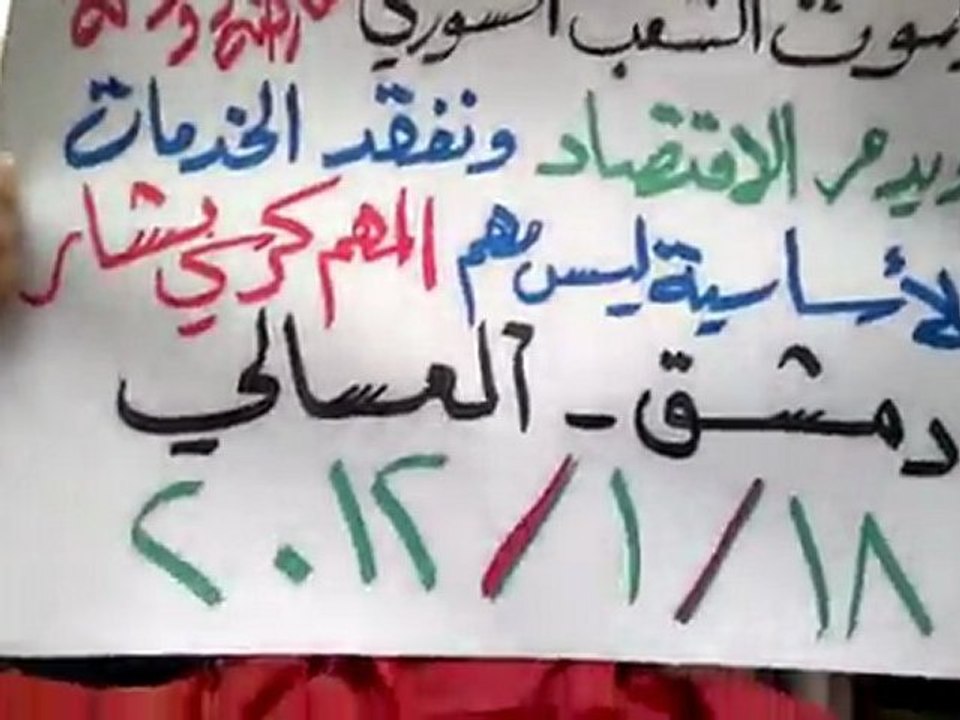 يموت الشعب السوري
ويدمر الاقتصاد ونفقد الخدمات
الأساسية ليس مهم المهم كرسي بشار
دمشق - العسالي
١٨/١/٢٠١٢